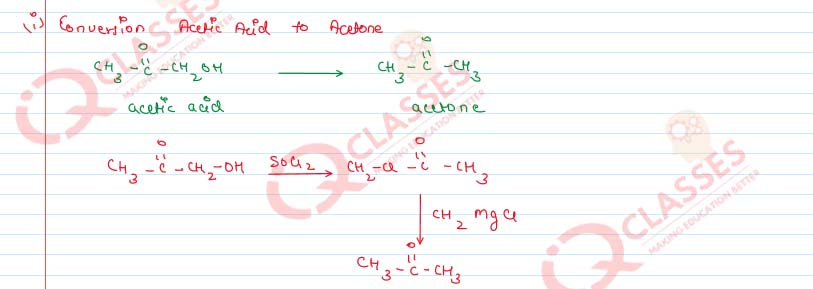 (i) Conversion Acetic Acid to Acetone
O
CH3 - C - CH2OH ⟶ CH3 - C - CH3
O
acetic acid acetone
O
CH3 - C - CH2-OH SOCl2 ⟶ CH2-Cl C - CH3
O
CH2 MgCl
O
CH3 - C - CH3
IQ CLASSES
MAKING EDUCATION BETTER
IQ CLASSES
MAKING EDUCATION BETTER
IQ CLASSES
MAKING EDUCATION BETTER